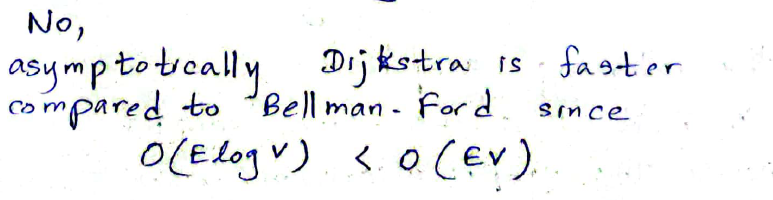 No,
asymptotically Dijkstra is faster
compared to Bellman-Ford since
O(E log V) < O(EV)